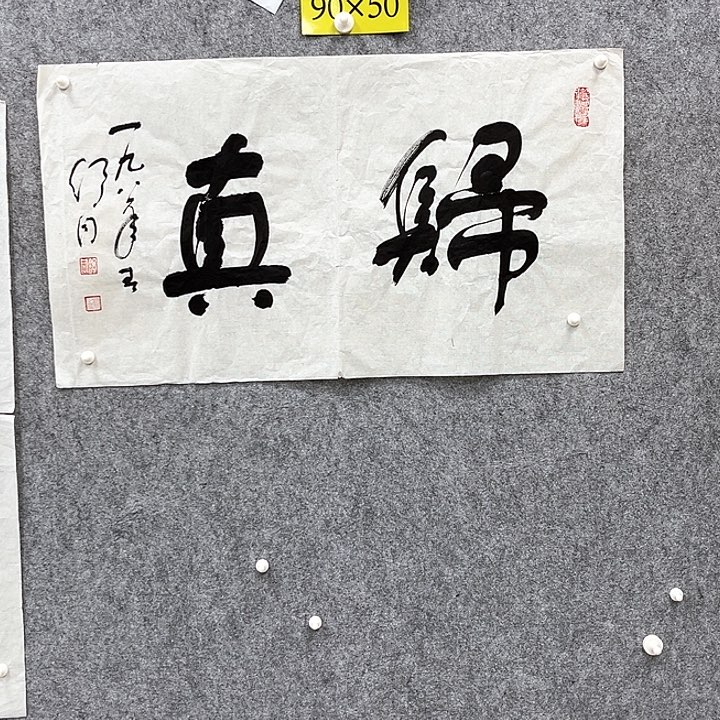 90×50
歸真
一九八年
舒同